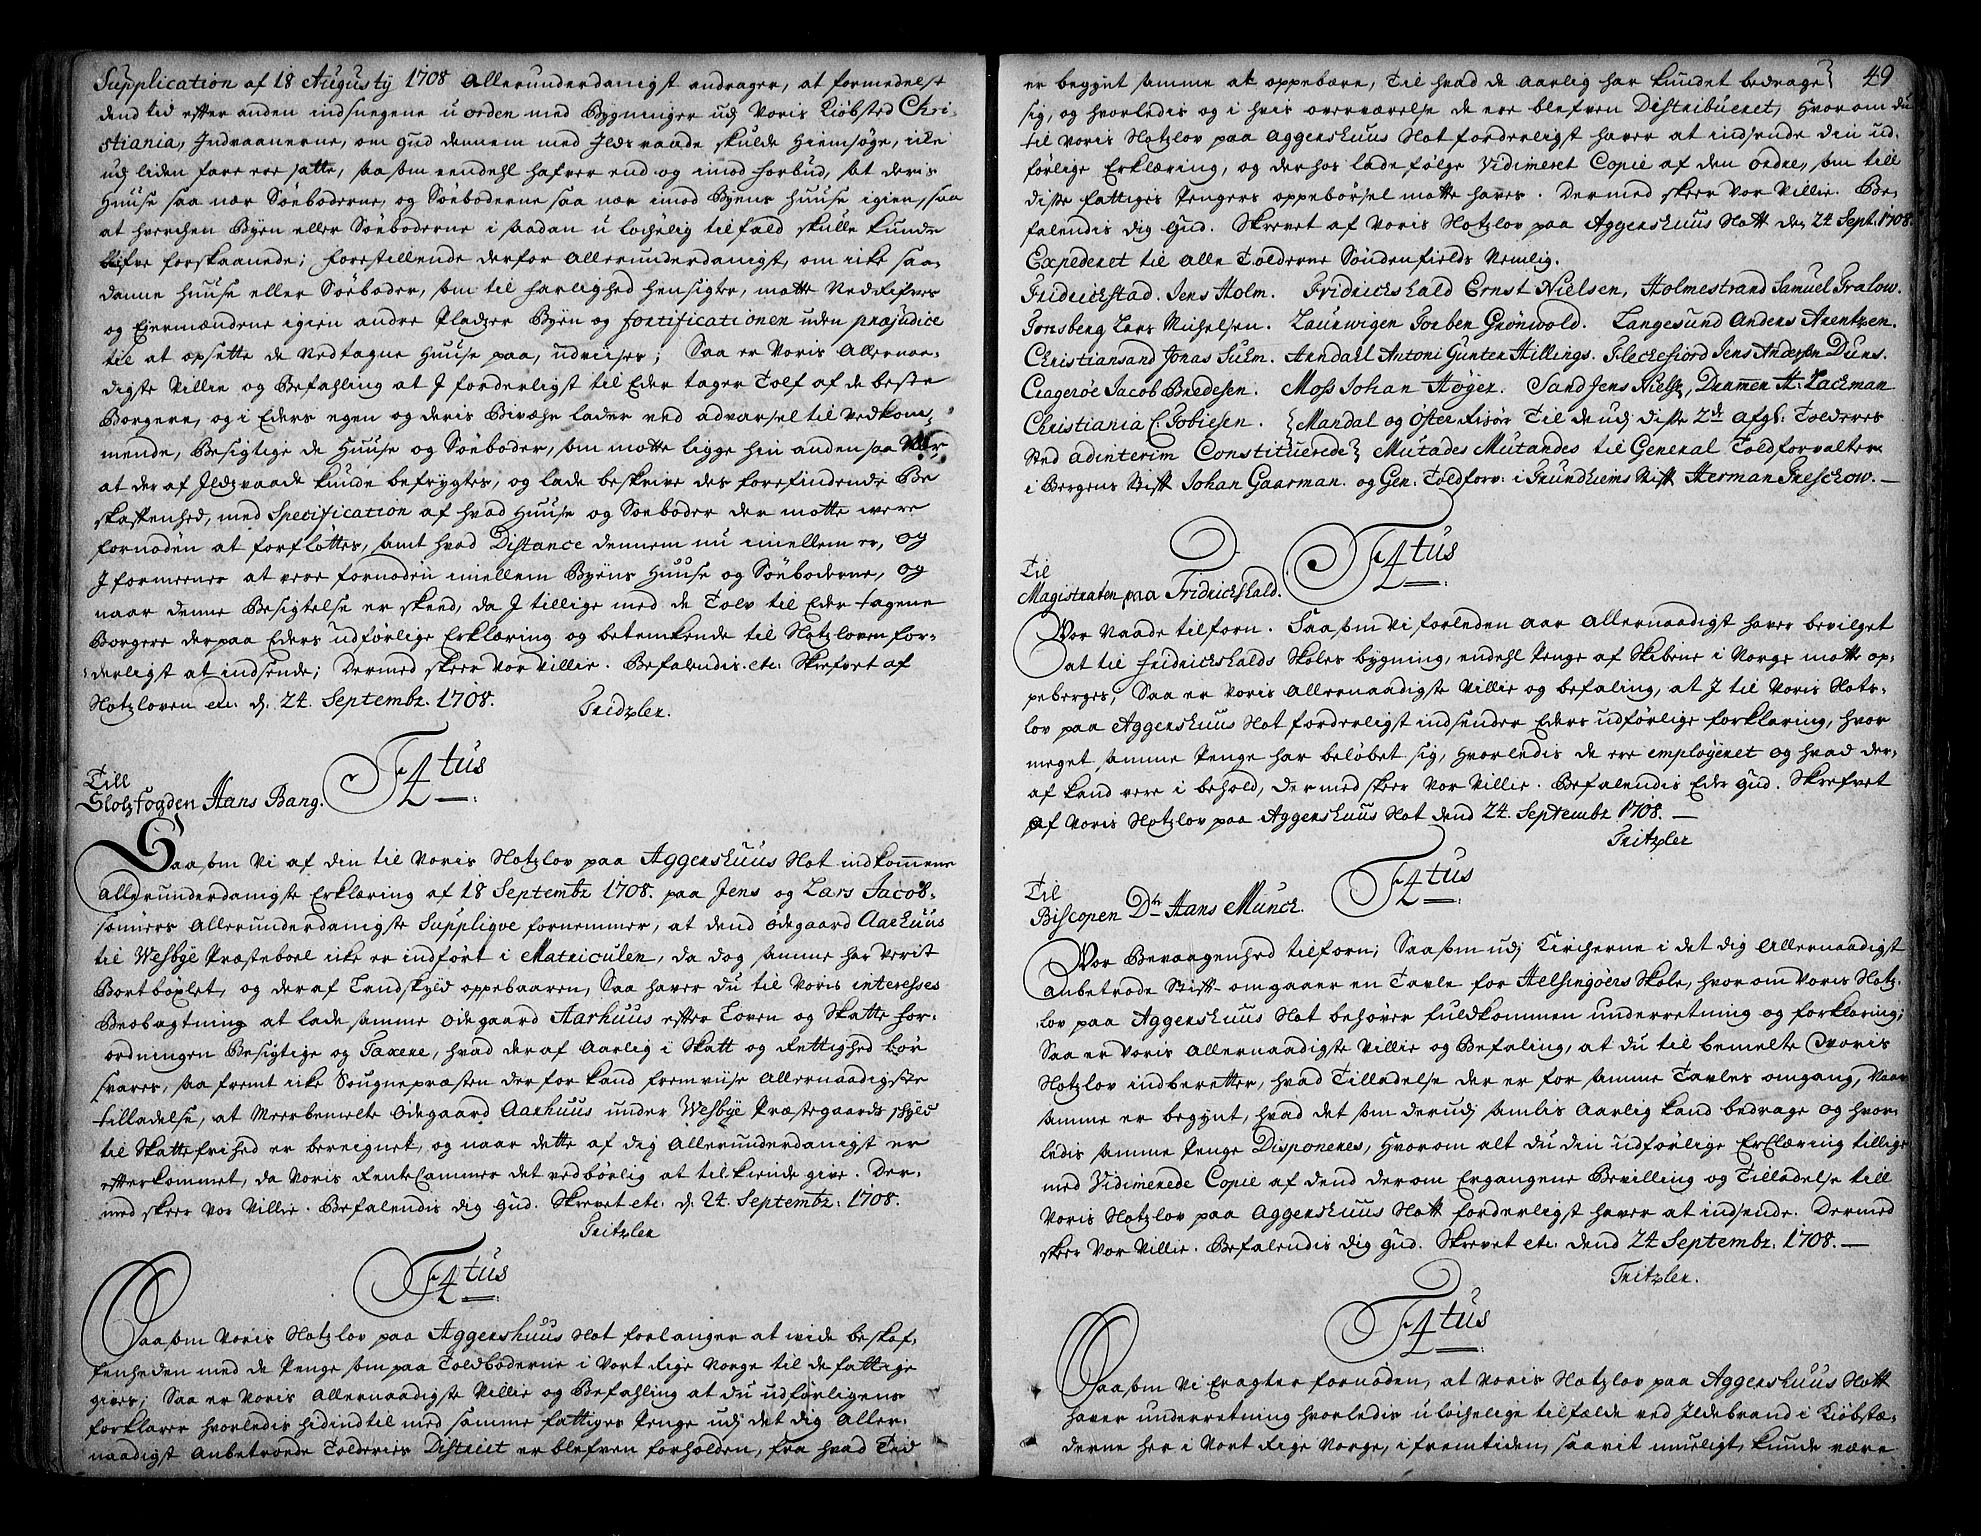 Supplication af 18 Augusty 1708 Allerunderdanigst andrager, at formedelst
dend tid efter anden indsnegene uorden med Bygninger udj Voris Kiøbsted Chri-
stiania, Indvaanerne, om Gud dennem med Ildsvaade skulde Hiemsøge, icke
udj liden fare ere satte, saasom eendehl hafver end og imod forbud, sat deris
Huuse saa nær Søeboderne, og Søeboderne saa nær imod Byens Huuse igien, saa
at hverchen Byen eller Søeboderne i saadan u lychelig tilfald skulle kunde
blifve forskaanede; forestillende derfor Allerunderdanigst, om icke saa-
danne Huuse eller Søeboder, som til farlighed Hensigter, motte Nedrifves
og Eyermændene igien andre Pladzer Byen og fortificationen uden præjudice
til at opsette de Nedtagne Huuse paa, udviises; Saa er Voris Allernaa-
digste Villie og Befahling at J forderligst til Eder tager Tolf af de beste
Borgere, og i Eders egen og deris Bivæhr lader ved advarsel til Vedkom-
mende, Besigtige de Huuse og Søeboder, som motte ligge hin anden saa Nær
at der af Ildsvaade kunde befrygtes, og lade beskrive des forefindende Be
skaffenhed, med Specification af hvad Huuse og Søeboder der motte were
fornøden at forfløttes, samt hvad Distance dennem nu imellem er, og
J formeener at vere fornøden imellem Byens Huuse og Søeboderne, og
naar denne Besigtelse er skeed, da J tillige med de Tolv til Eder tagene
Borgere derpaa Eders udførlige Erklæring og betenkende til Slotzloven for-
derligst at indsende; Dermed skeer Vor Villie. Befalendis etc: Skrefvet af
Slotzloven etc: d: 24. Septembr. 1708.
Tritzler.
F 4tus
Till
Slotzfogden Hans Bang.
Saasom Vi af din til Voris Slotzlov paa Aggershuus Slot indkommene
Allerunderdanigste Erklæring af 18 Septembr 1708. paa Jens og Lars Jacob-
sønners Allerunderdanigste Suppliqve fornemmer, at dend Ødegaard Aarhuus
til Wesbye Præsteboel icke er indført i Matriculen, da dog samme har Verit
Bortbøxlet, og deraf Landskyld oppebaaren, Saa haver du til Voris interesses
Beobagtning at lade samme Ødegaard Aarhuus efter Loven og Skatte for-
ordningen Besigtige og Taxere, hvad der af Aarlig i Skatt og Rettighed bør
svares, saa fremt icke Sougnepræsten der for kand fremviise Allernaadigste
tilladelse, at Meerbemelte Ødegaard Aarhuus under Wesbye Præstegaards skyld
til Skattefrihed er bereignet, og naar dette af dig Allerunderdanigst er
efterkommet, da Voris RenteCammer det vedbørlig at tilkiende give. Der-
med skeer Vor Villie. Befalendis dig Gud. Skrevet etc: d: 24. Septembr: 1708.
Tritzler
F 4tus
Saasom Voris Slotzlov paa Aggershuus Slot forlanger at vide beskaf-
fenheden med de Penge som paa Toldboderne i Vort Rige Norge til de fattige
gives; Saa er Voris Allernaadigste Villie og Befahling at du udførligens
forklarer hvorledis hidindtil med samme fattiges Penge udj det dig Aller-
naadigst Anbetroede Tolderies District er blefven forholden, fra hvad Tid
49
er begynt samme at oppebære, Til hvad de Aarlig har kundet bedrage
sig, og hvorledis og i hvis overværelse de ere blefven Distribueret, Hvorom du
til Voris Slotzlov paa Aggershuus Slot forderligst haver at indsende din ud-
førlige Erklæring, og der hos lade følge Vidimeret Copie af den Ordre, som till
diste fattiges Pengers oppebørsel motte haves. Dermed skeer Vor Villie. Be-
falendis dig Gud. Skrevet af Voris Slotzlov paa Aggershuus Slott den 24 Sept: 1708.
Expederet til Alle Tolderne Søndenfields Nemlig.
Fridrickstad. Jens Holm. Fridrickshald Ernst Nielsen, Holmestrand Samuel Tralow.
Tonsberg Lars Michelsen. Laurwigen Torben Grønwold. Langesund Anders Arentzen.
Christiansand Jonas Suhm. Arndahl Antoni Gunter Hillings. Fleckefiord Jens Andersen Duns.
Cragerøe Jacob Bredesen. Moss Johan Høyer. Sand Jens Niels:, Drammen H: Lachman
Christiania C. Tobiesen. Mandal og Øster Risør Til de udj diste 2de afg: Tolderes
sted adinterim Constituerede Mutades Mutandes til General Toldforvalter
i Bergens Stift Johan Gaarman. og Gen: Toldforv: i Trundhiems Stift Herman Treschow.
F 4tus
Til
Magistraten paa Fridrichshald.
Vor Naade tilforn. Saasom Vi forleden Aar Allernaadigst haver bevilget
at til Fridrichshalds Skoles bygning, eendehl Penge af Skibene i Norge motte op-
peberges, Saa er Voris Allernaadigste Villie og befaling, at J til Voris Slots-
lov paa Aggershuus Slot forderligst indsender Eders udførlige forklaring, hvor
meget samme Penge har beløbet sig, Hvorledis de ere employeret og hvad der-
af kand vere i behold, Dermed skeer Vor Villie. Befalendis Eder Gud. Skrefvet
af Voris Slotzlov paa Aggershuus Slot dend 24. Septembr 1708.
Tritzler
F 4tus
Til
Biscopen Dr Hans Munch.
Vor Bevaagenhed tilforn; Saasom udj Kircherne i det dig Allernaadigst
Anbetrode Stift omgaaer en Tavle for Helsingøers Skole, hvorom Voris Slotz-
lov paa Aggershuus Slot behøver fuldkommen underretning og forklaring;
Saa er Voris Allernaadigste Villie og Befaling, at du til bemelte Voris
Slotzlov indberetter, hvad Tilladelse der er for samme Tavles omgang, Naar
samme er begynt, hvad det som derudj samlis Aarlig kand bedrage og hvor-
ledis samme Penge Disponeres, Hvorom alt du din udførlige Erclæring tillige
med Vidimerede Copie af dend derom Ergangene Bevilling og Tilladelse till
Voris Slotzlov paa Aggershuus Slott forderligst haver at indsende. Dermed
skeer Vor Villie. Befalendis dig Gud. Skrevet etc: dend 24 Septembr: 1708.
Tritzler.
F 4tus
Saasom Vi Eragter fornøden, at Voris Slotzlov paa Aggershuus Slott
haver underretning hvorledis ulychelige tilfælde ved Ildebrand i Kiøbstæ-
derne her i Vort Rige Norge, i fremtiden, saavit mueligt, kunde være